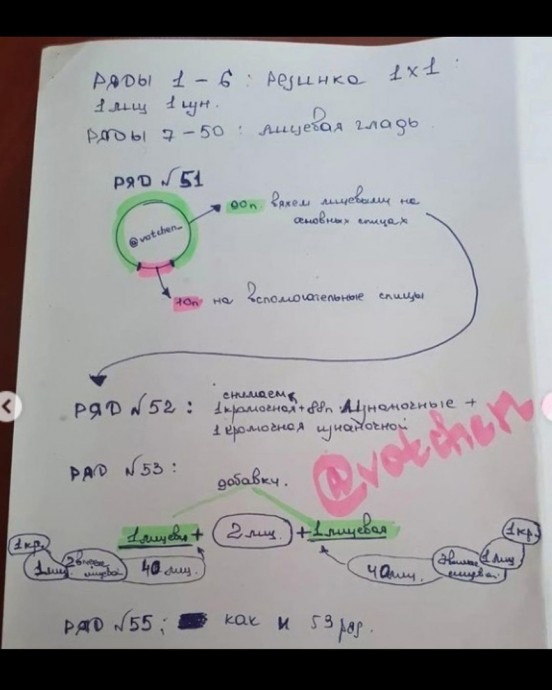 РЯДЫ 1 – 6 : резинка 1х1 :
1 лиц 1 изн.
РЯДЫ 7-50 : лицевая гладь
РЯД №51
@votchen_
90п. вяжем лицевыми на
основных спицах
10п на вспомогательные спицы
РЯД №52 : снимаем
1 кромочная + 88п изнаночные +
1 кромочная изнаночной
@votchen
РЯД №53 :
добавки.
1 лицевая + 2 лиц. + 1 лицевая
1кр. 1 лиц. 2 вместе лицевой 40 лиц.
40 лиц. лицевой 1 лиц 1кр.
РЯД №55 ; как и 53 ряд.